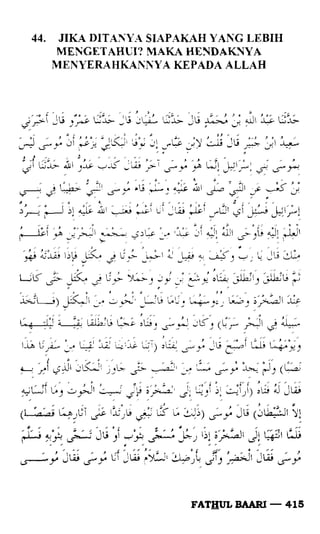 44. JIKA DITANYA SIAPAKAH YANG LEBIH
MENGETAHUI? MAKA HENDAKNYA
MENYERAHKANNYA KEPADA ALLAH
حدثنا عبد الله بن محمد قال حدثنا سفيان قال حدثنا عمرو قال أخبرني
سعيد بن جبير قال قلت لابن عباس إن نوفا البكالي يزعم أن موسى ليس
بموسى بني إسرائيل إنما هو موسى آخر فقال كذب عدو الله حدثنا أبي
بن كعب عن النبي صلى الله عليه وسلم قام موسى النبي خطيبا في
بني إسرائيل فسئل أي الناس أعلم فقال أنا أعلم فعتب الله عليه إذ لم يرد
العلم إليه فأوحى الله إليه أن عبدا من عبادي بمجمع البحرين هو أعلم
منك قال يا رب وكيف به فقيل له احمل حوتا في مكتل فإذا فقدته فهو
ثم فانطلق وانطلق بفتاه يوشع بن نون وحملا حوتا في مكتل حتى كانا
عند الصخرة وضعا رءوسهما وناما فانسل الحوت من المكتل (فاتخذ
سبيله في البحر سربا) وكان لموسى وفتاه عجبا فانطلقا بقية ليلتهما
ويومهما فلما أصبح قال موسى لفتاه (آتنا غداءنا لقد لقينا من سفرنا هذا
نصبا) ولم يجد موسى مسا من النصب حتى جاوز المكان الذي أمر به
فقال له فتاه (أرأيت إذ أوينا إلى الصخرة فإني نسيت الحوت وما أنسانيه
إلا الشيطان) قال موسى (ذلك ما كنا نبغي فارتدا على آثارهما قصصا)
فلما انتهيا إلى الصخرة إذا رجل مسجى بثوب أو قال تسجى بثوبه فسلم
موسى فقال الخضر وأنى بأرضك السلام فقال أنا موسى فقال موسى
FATHUL BAARI — 415